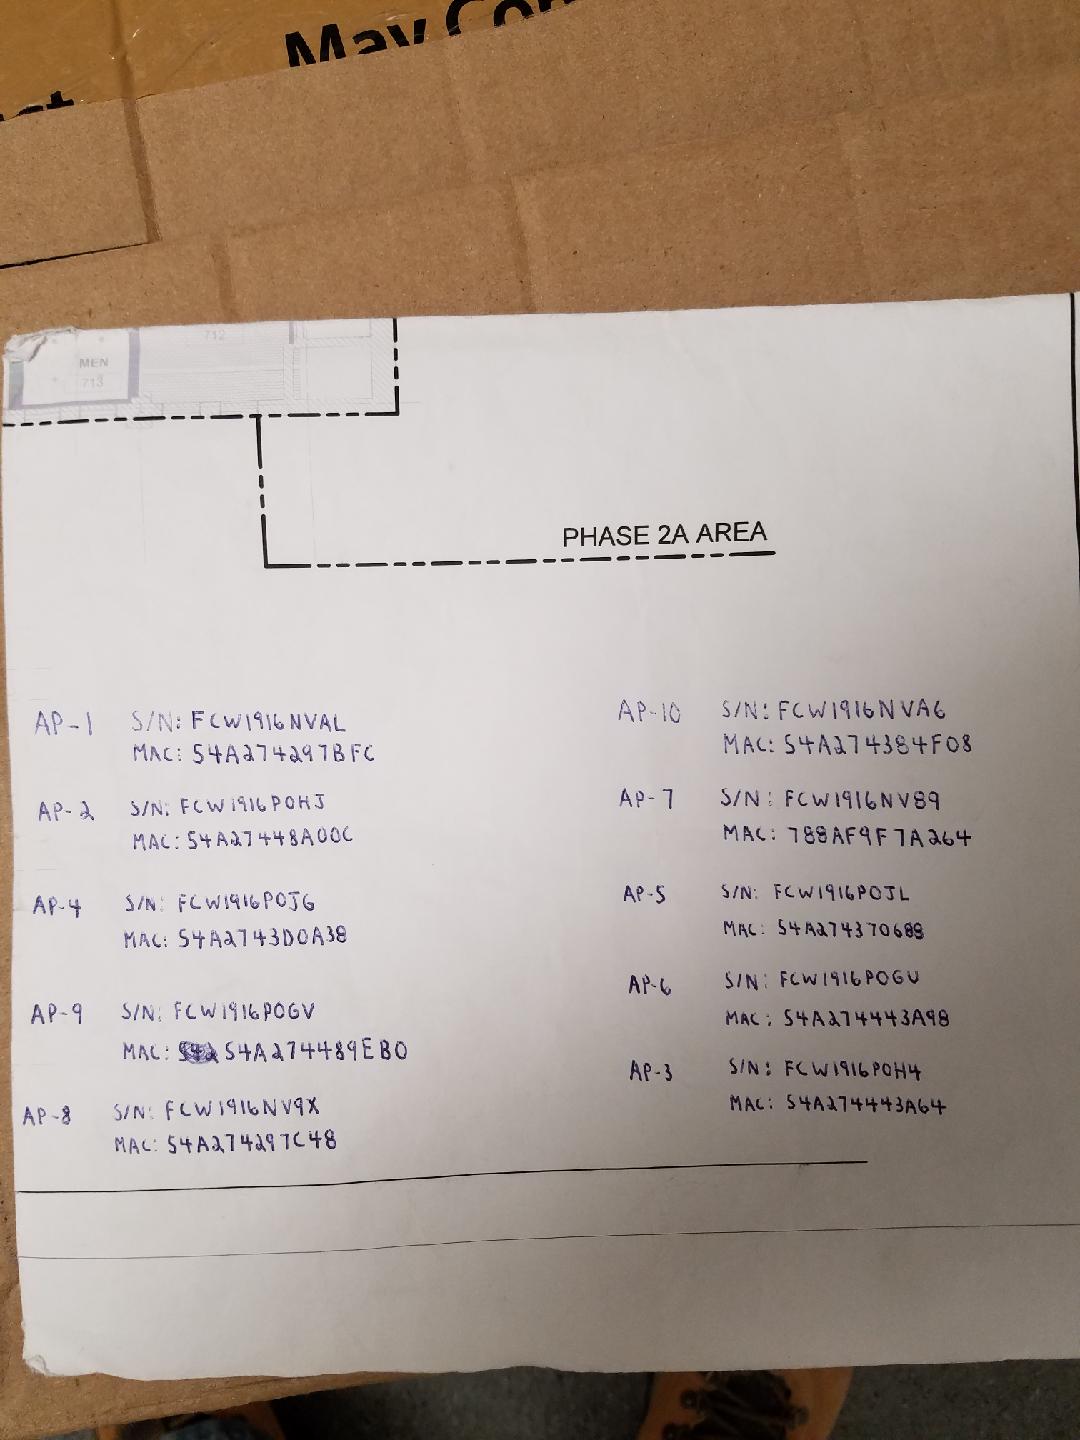 May Con
712
MEN
713
PHASE 2A AREA
AP-1 S/N: FCW1916NVAL
MAC: 54A274297BFC
AP-2 S/N: FCW1916P0HJ
MAC: 54A27448A00C
AP-4 S/N: FCW1916P0JG
MAC: 54A2743D0A38
AP-9 S/N: FCW1916P0GV
MAC: 54A274489EB0
AP-8 S/N: FCW1916NV9X
MAC: 54A274297C48
AP-10 S/N: FCW1916NVAG
MAC: 54A274384F08
AP-7 S/N: FCW1916NV89
MAC: 788AF9F7A264
AP-5 S/N: FCW1916P0JL
MAC: 54A274370688
AP-6 S/N: FCW1916P0GU
MAC: 54A274443A98
AP-3 S/N: FCW1916P0H4
MAC: 54A274443A64